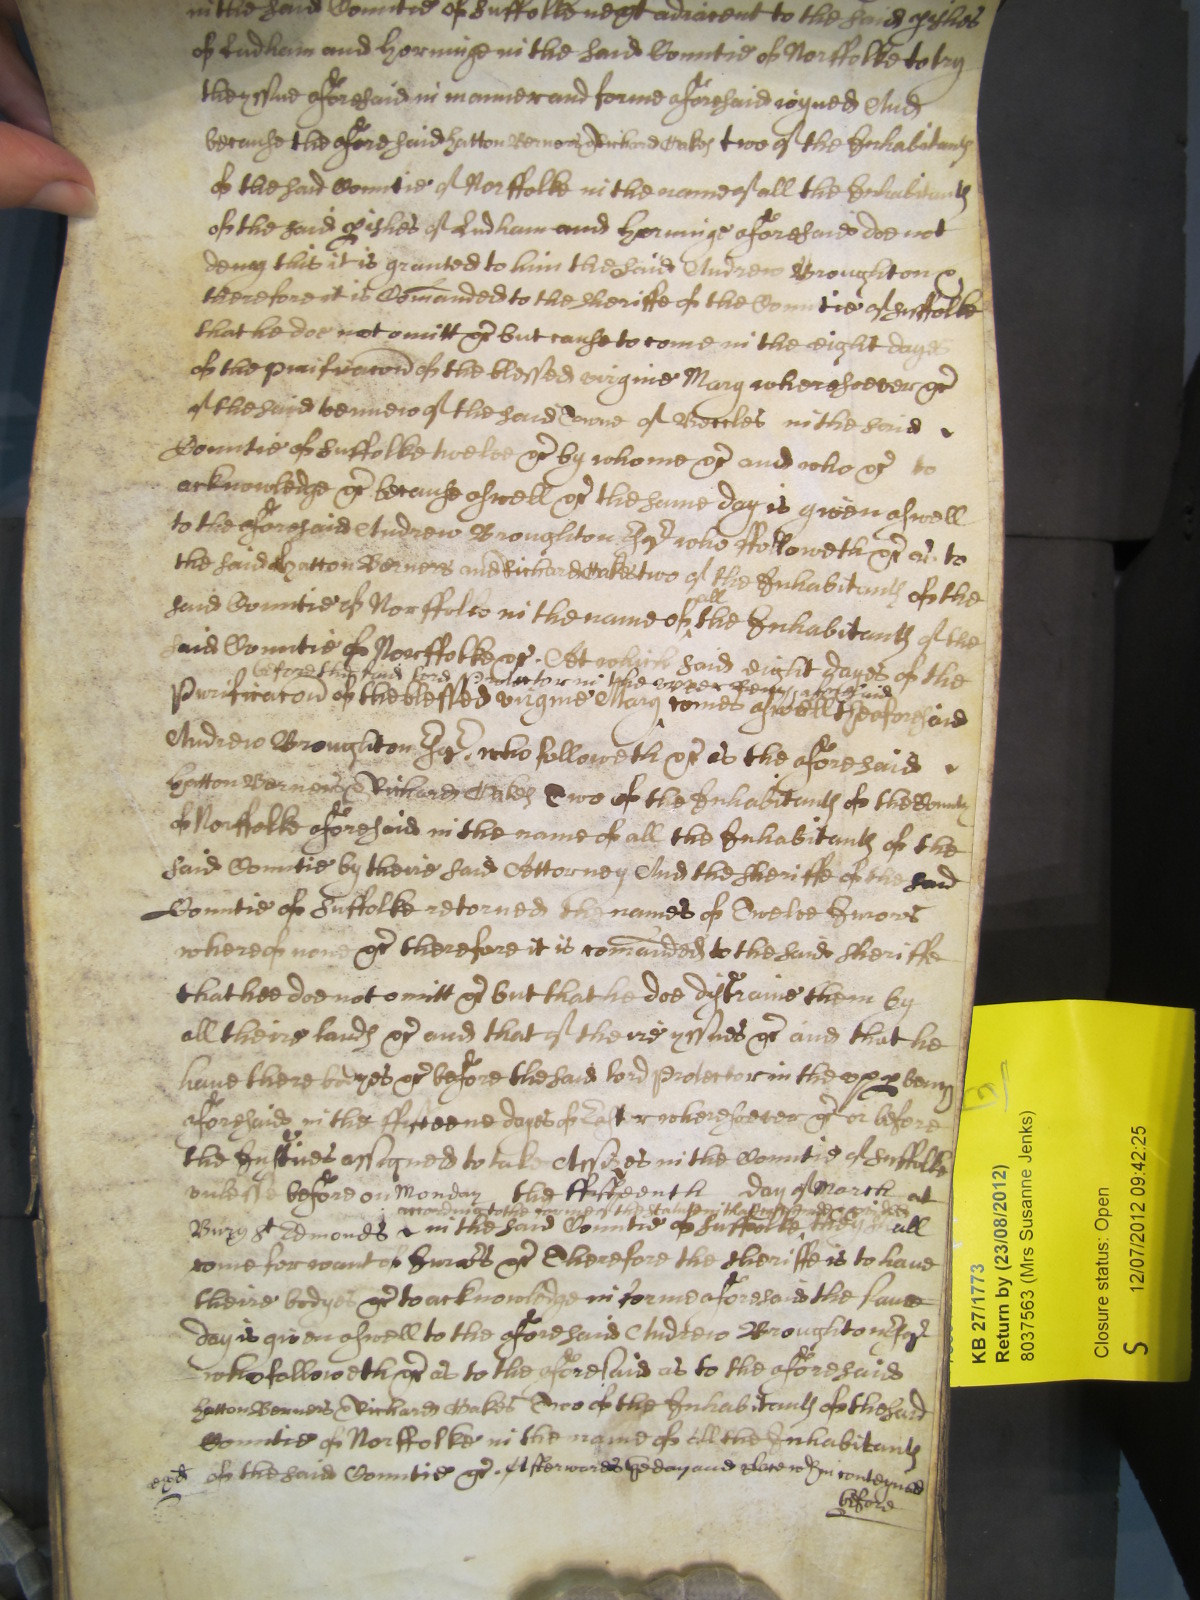 in the said Countie of Suffolke next adiacent to the said pishes
of Ludham and Horninge in the said Countie of Norffolke to try
the yssue aforesaid in manner and forme aforesaid ioyned And
because the aforesaid Hatton Berners & Richard Oakes two of the Inhabitants
of the said Countie of Norffolke in the name of all the Inhabitants
of the said pishes of Ludham and Horninge aforesaid doe not
deny this it is granted to him the said Andrew Broughton &c
therefore it is Comanded to the sheriffe of the Countie of Suffolke
that he doe not omitt &c but cause to come in the eight dayes
of the purificacon of the blessed virgine Mary wheresoever &c
of the said vennew of the said Towne of Beccles in the said
Countie of Suffolke twelve &c by whome &c and who &c to
acknowledge &c because aswell &c the same day is given aswell
to the aforesaid Andrew Broughton Esqr who ffolloweth &c as to
the said Hatton Berners and Richard Oakes two of the Inhabitants of the
all
said Countie of Norffolke in the name of the Inhabitants of the
said Countie of Norffolke &c. At which said eight dayes of the
before the said lord Protector in the upper bench aforesaid
Purificacon of the blessed virgine Mary comes aswell the aforesaid
Andrew Broughton Esqr. who followeth &c as the aforesaid
Hatton Berners & Richard Oakes Two of the Inhabitants of the County
of Norffolke aforesaid in the name of all the Inhabitants of the
said Countie by theire said Attorney And the Sheriffe of the said
Countie of Suffolke retorned the names of Twelve Jurors
whereof none &c therefore it is comanded to the said sheriffe
that hee doe not omitt &c but that he doe distraine them by
all theire lands &c and that of theire yssues &c and that he
have there bodyes &c before the said lord Protector in the upp bench
aforesaid in the ffifteene dayes of Easter wheresoever &c or before
the Justices assigned to take Assizes in the Countie of Suffolke
unlesse before on Monday the ffifteenth day of March at
according to the forme of the statute in that case
Bury St Edmonds in the said Countie of Suffolke they shall
come for want of Jurors &c Therefore the sheriffe is to have
theire bodyes &c to acknowledge in forme aforesaid the same
day is given aswell to the aforesaid Andrew Broughton Esqr
who followeth &c as to the aforesaid as to the aforesaid
Hatton Berners & Richard Oakes Two of the Inhabitants of the said
Countie of Norffolke in the name of all the Inhabitants
of the said Countie &c. Afterwards the day and place within conteyned
before
KB 27/1773
Return by (23/08/2012)
8037563 (Mrs Susanne Jenks)
Closure status: Open
S 12/07/2012 09:42:25